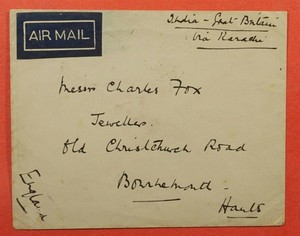 AIR MAIL
India - Great Britain
via Karachi
Messrs Charles Fox
Jewellers.
Old Christchurch Road
Bournemouth.
Hants
England